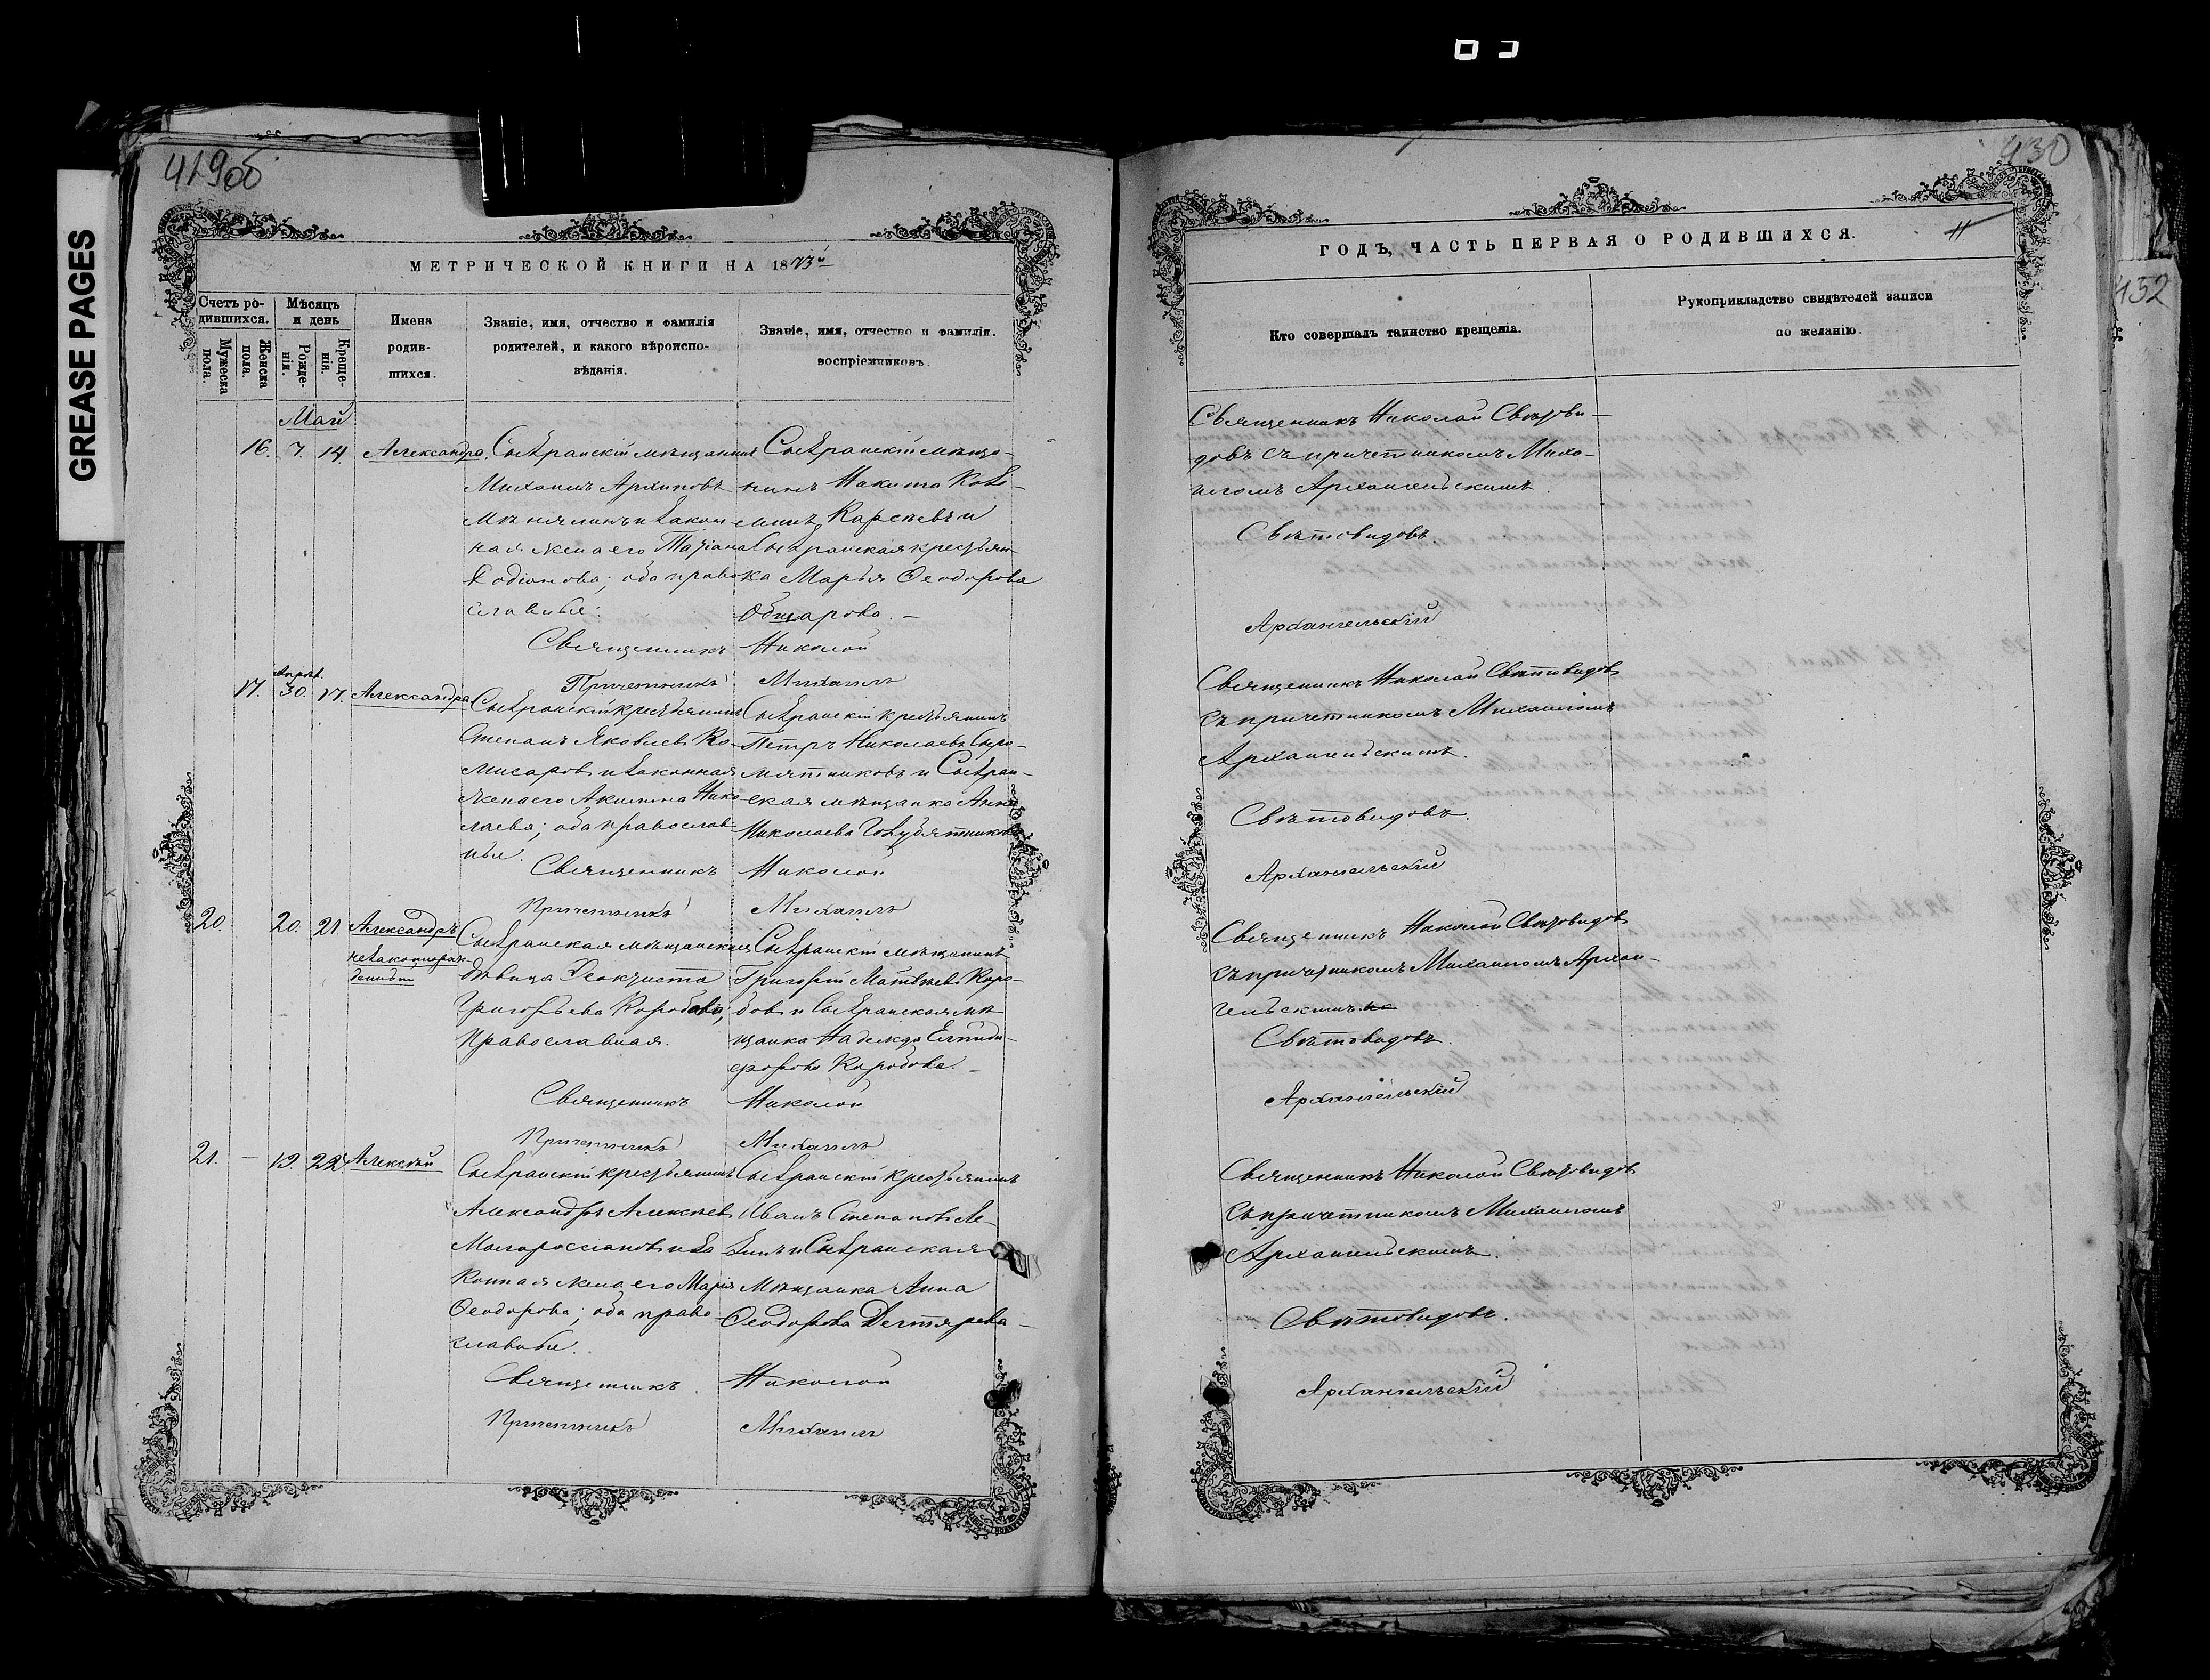 GREASE PAGES
429об
МЕТРИЧЕСКОЙ КНИГИ НА 1873й
Счетъ ро-
дившихся.
Мужеска
пола.
Женска
пола.
Мѣсяцъ
и день
Рожде-
нія.
Креще-
нія.
Имена
родив-
шихся.
Званіе, имя, отчество и фамилія
родителей, и какого вѣроиспо-
вѣданія.
Званіе, имя, отчество и фамилія.
воспріемниковъ.
Май
16. 7. 14. Александра.
Сызранскій мѣщанинъ
Михаилъ Архиповъ
и закон-
ная жена его Татіана
Родіонова; оба право-
славные.
Сызранскій мѣща-
нинъ Никита
Карпѣевъ и
Сызранская крестьян-
ка Марья Ѳеодорова
Овчарова.
Священникъ Николай
Причетникъ Михаилъ
Апрѣл.
17. 30. 17. Александра
Сызранскій крестьянинъ
Степанъ Яковлевъ Ко-
мисаровъ и законная
жена его Акилина Нико-
лаева; оба православ-
ные.
Сызранскій крестьянинъ
Петръ Николаевъ Сыро-
мятниковъ и Сызран-
ская мѣщанка Анна
Николаева Голубятникова
Священникъ Николай
Причетникъ Михаилъ
20. 20. 21. Александръ
незаконорож-
денный
Сызранская мѣщанская
дѣвица Ѳеоктиста
Григорьева Коробова;
православная.
Сызранскій мѣщанинъ
Григорій Матвѣевъ Коро-
бовъ и Сызранская мѣ-
щанка Надежда Елпиди-
форова Коробова.
Священникъ Николай
Причетникъ Михаилъ
21. — 19. 22. Алексѣй
Сызранскій крестьянинъ
Александръ Алексѣевъ
Малороссіяновъ и за-
конная жена его Марія
Ѳеодорова; оба право-
славные.
Сызранскій крестьянинъ
Иванъ Степановъ Ле-
зинъ и Сызранская
мѣщанка Анна
Ѳеодорова Дегтярева
Священникъ Николай
Причетникъ Михаилъ
430
11
ГОДЪ, ЧАСТЬ ПЕРВАЯ О РОДИВШИХСЯ.
Кто совершалъ таинство крещенія.
Рукоприкладство свидѣтелей записи
по желанію.
Священникъ Николай Свѣтови-
довъ съ причетникомъ Миха-
иломъ Архангельскимъ.
Свѣтовидовъ.
Архангельскій
Священникъ Николай Свѣтовидовъ
съ причетникомъ Михаиломъ
Архангельскимъ.
Свѣтовидовъ.
Архангельскій
Священникъ Николай Свѣтовидовъ
съ причетникомъ Михаиломъ Архан-
гельскимъ.
Свѣтовидовъ.
Архангельскій
Священникъ Николай Свѣтовидовъ
съ причетникомъ Михаиломъ
Архангельскимъ.
Свѣтовидовъ.
Архангельскій
432